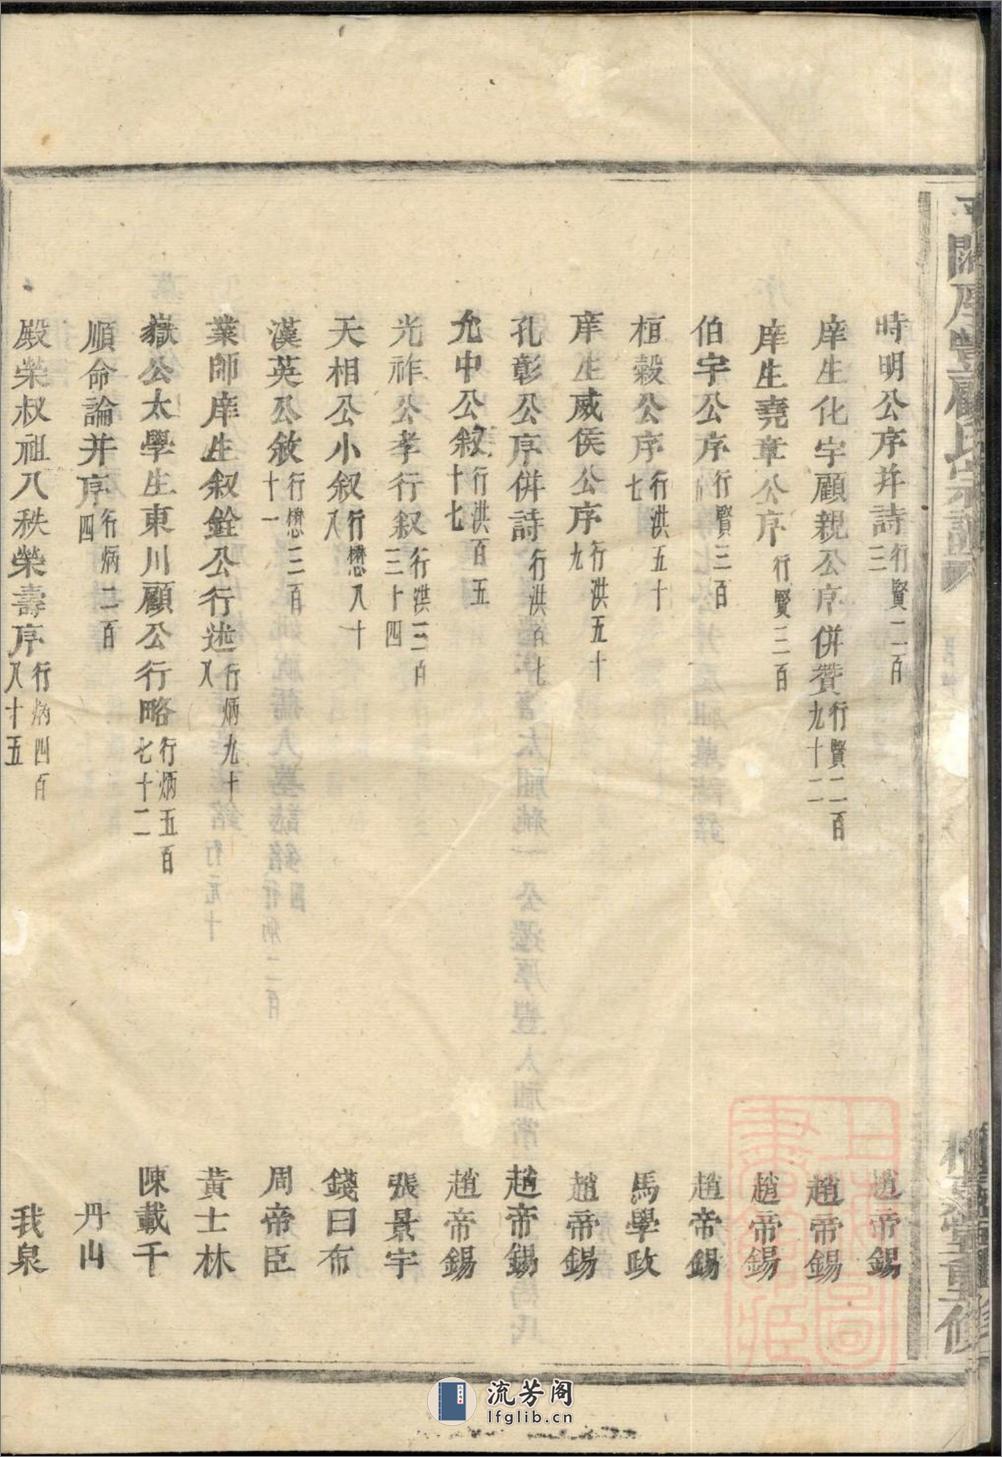 時明公序并詩行賢二百三 趙帝錫
庠生化宇顧親公序併贊行賢二百九十二 趙帝錫
庠生堯章公序行賢三百 趙帝錫
伯宇公序行賢三百 趙帝錫
桓穀公序行洪五十七 馬學政
庠生威侯公序行洪五十九 趙帝錫
孔彰公序併詩行洪百七 趙帝錫
允中公敘行洪百五十七 趙帝錫
光祚公孝行叙行洪三百三十四 張景宇
天相公小叙行懋八十八 錢日布
漢英公敘行懋三百十一 周帝臣
業師庠生叙銓公行述行炳九十八 黃士林
嶽公太學生東川顧公行略行炳五百七十二 陳載千
順命論并序行炳二百四 丹山
殿榮叔祖八秩榮壽序行炳四百八十五 我泉
厚豐顧氏宗譜
堂重修
上海圖書館藏
流芳阁
lfglib.cn